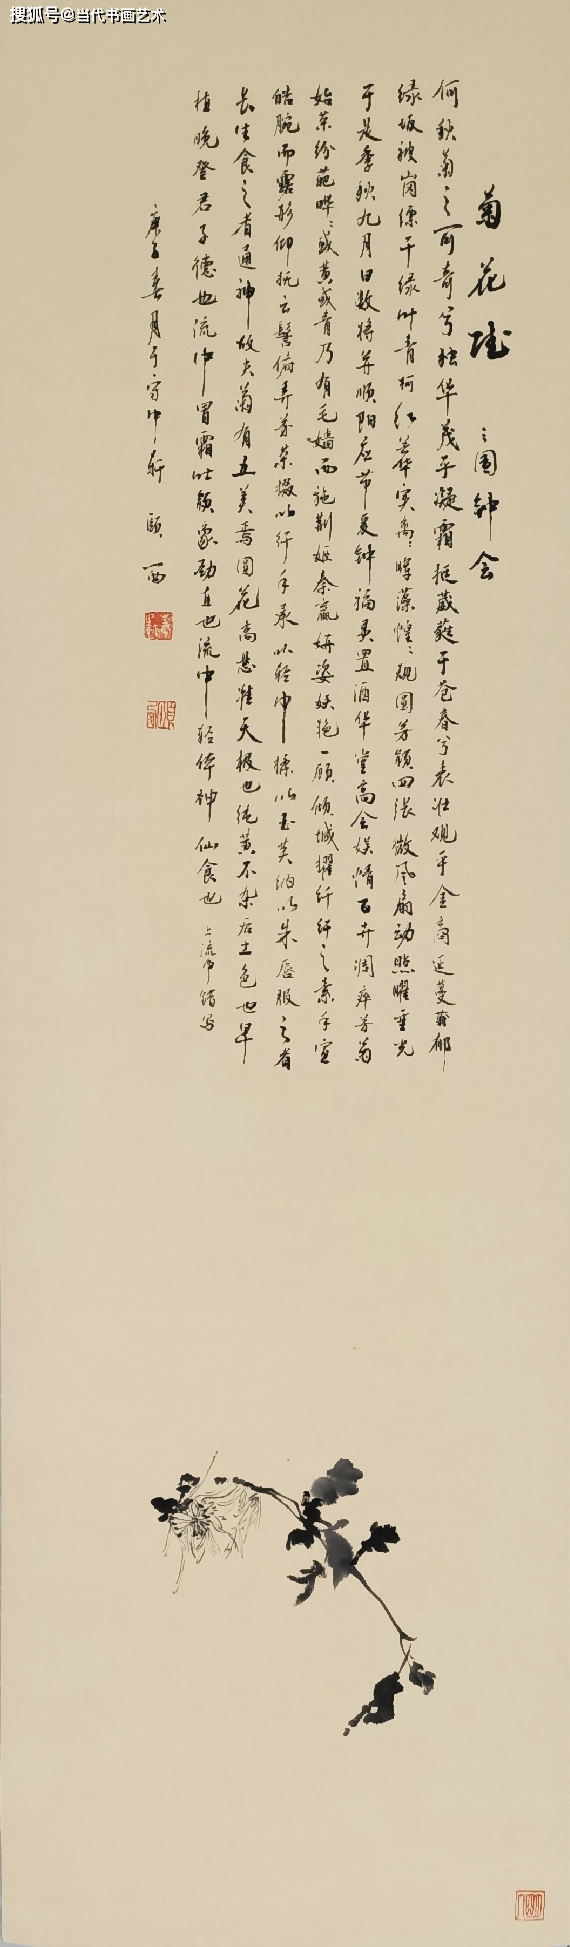 搜狐号@当代书画艺术
菊花赋
三国钟会
何秋菊之可奇兮独华茂乎凝霜挺葳蕤于苍春兮表壮观乎金商延蔓蓊郁
绿坂被岗缥干绿叶青柯红芒华实离离晖藻煌煌规圆芳颖四张微风扇动照曜垂光
于是季秋九月日数将并顺阳应节爰钟福灵置酒华堂高会娱情百卉凋瘁芳菊
始荣纷葩晔晔或黄或青乃有毛嫱西施荆姬秦嬴妍姿妖艳一顾倾城擢纤纤之素手宣
皓腕而露形仰抚云髻俯弄芳荣掇以纤手承以轻巾揉以玉英纳以朱唇服之者
长生食之者通神故夫菊有五美焉圆花高悬准天极也纯黄不杂后土色也早
植晚登君子德也流中冒霜吐颖象劲直也流中轻体神仙食也 上流中错写
庚子春月于守中轩 颐西